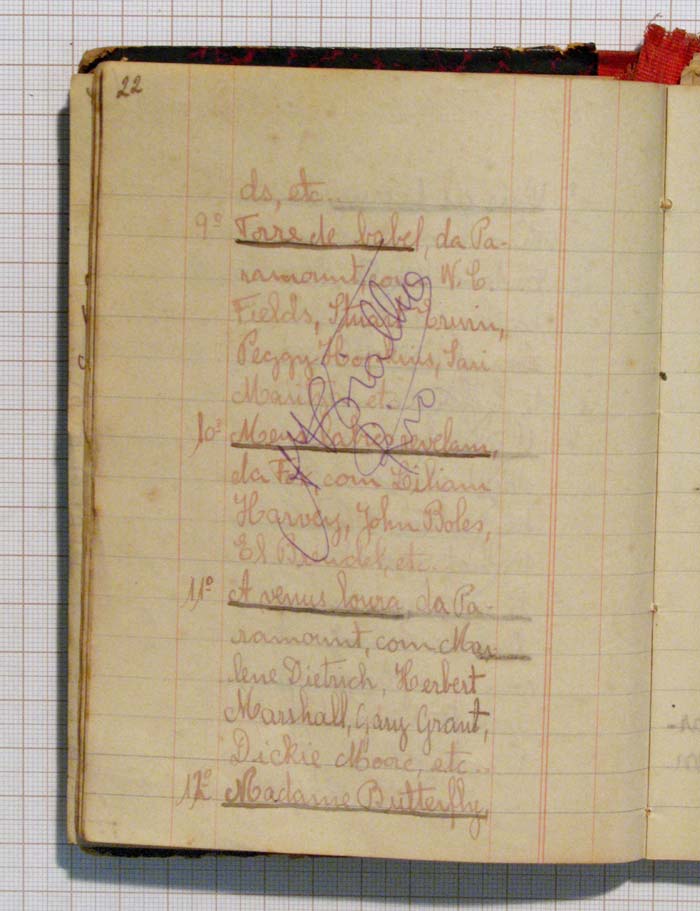 22
ds, etc.
9º Torre de babel, da Pa-
ramount, com W. C.
Fields, Stuart Erwin,
Peggy Hopkins, Sari
Maritza, etc.
10º Meus labios revelam,
da Fox, com Liliam
Harvey, John Boles,
El Brendel, etc.
11º A venus loura, da Pa-
ramount, com Mar-
lene Dietrich, Herbert
Marshall, Gary Grant,
Dickie Moore, etc..
12º Madame Butterfly,
Rio